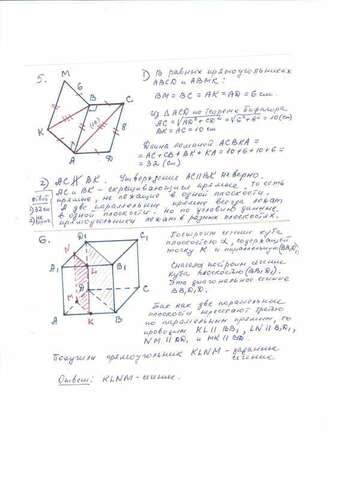 5.
M
6
B
C
K
8
(10)
A
D
1) В равных прямоугольниках
ABCD и ABMK:
BM = BC = AK = AD = 6 см.
из ΔACD по теореме Пифагора
AC = √AD² + CD² = √6² + 8² = 10 (см)
BK = AC = 10 см
Длина ломаной ACBKA =
= AC + CB + BK + KA = 10 + 6 + 10 + 6 =
= 32 (см)
2) AC ∦ BK. Утверждение AC ∥ BK неверно.
AC и BK - скрещивающиеся прямые, то есть
прямые, не лежащие в одной плоскости.
А две параллельные прямые всегда лежат
в одной плоскости. Но по условию данные
прямоугольники лежат в разных плоскостях.
Ответ:
1) 32 см
6.
D₁
C₁
N
A₁
L
B₁
M
D
C
A
K
B
Построим сечение куба
плоскостью α, содержащей
точку K и параллельную (BB₁D₁)
Сначала построим сечение
куба плоскостью (BB₁D₁).
Это диагональное сечение
BB₁D₁D.
Так как две параллельные
плоскости пересекают третью
по параллельным прямым, то
проводим KL ∥ BB₁, LN ∥ B₁D₁,
NM ∥ DD₁ и MK ∥ BD.
Получили прямоугольник KLNM - заданное
сечение
Ответ: KLNM -